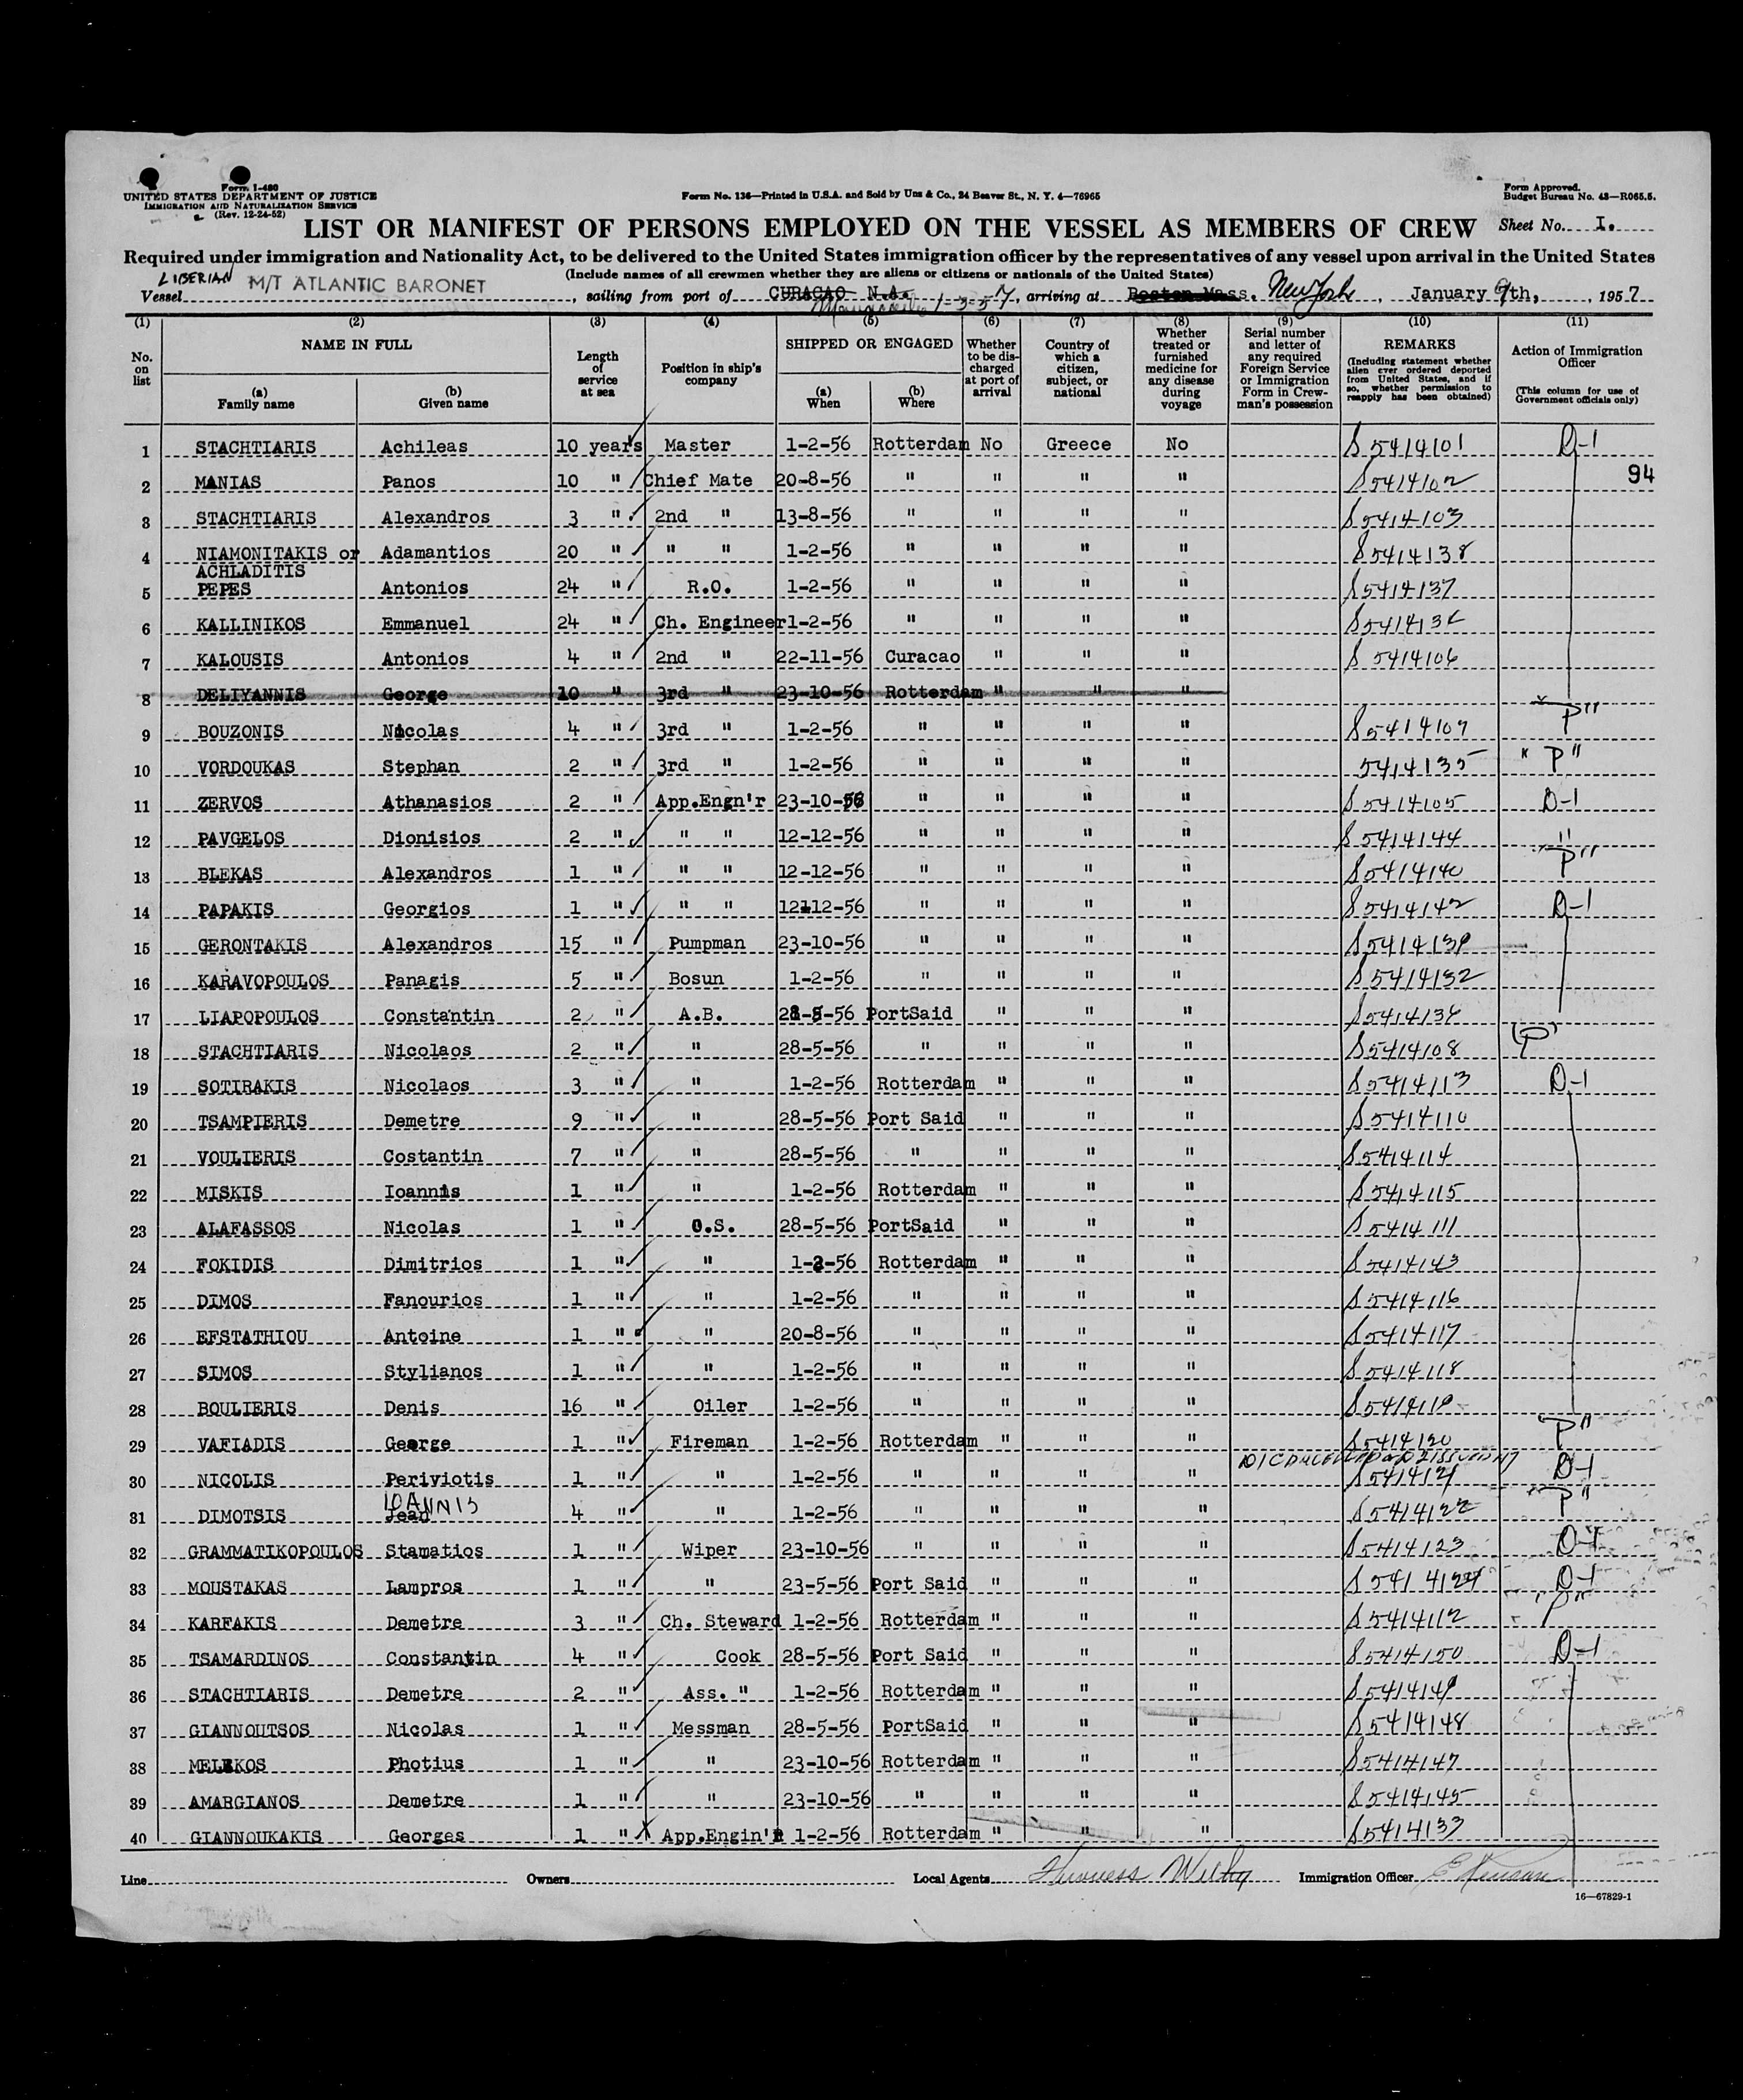 Form I-480
UNITED STATES DEPARTMENT OF JUSTICE
IMMIGRATION AND NATURALIZATION SERVICE
(Rev. 12-24-52)
Form No. 136—Printed in U.S.A. and Sold by Unz & Co., 24 Beaver St., N. Y. 4—76965
Form Approved.
Budget Bureau No. 43—R065.5.
LIST OR MANIFEST OF PERSONS EMPLOYED ON THE VESSEL AS MEMBERS OF CREW
Sheet No. I.
Required under immigration and Nationality Act, to be delivered to the United States immigration officer by the representatives of any vessel upon arrival in the United States
(Include names of all crewmen whether they are aliens or citizens or nationals of the United States)
Vessel LIBERIAN M/T ATLANTIC BARONET, sailing from port of CURACAO N.A. 1-3-57, arriving at Boston Mass. New York, January 9th, 1957
(1) (2) (3) (4) (5) (6) (7) (8) (9) (10) (11)
No. on list
NAME IN FULL
(a) Family name
(b) Given name
Length of service at sea
Position in ship's company
SHIPPED OR ENGAGED
(a) When
(b) Where
Whether to be discharged at port of arrival
Country of which a citizen, subject, or national
Whether treated or furnished medicine for any disease during voyage
Serial number and letter of any required Foreign Service or Immigration Form in Crewman's possession
REMARKS
(Including statement whether alien ever ordered deported from United States, and if so, whether permission to reapply has been obtained)
Action of Immigration Officer
(This column for use of Government officials only)
1 STACHTIARIS Achileas 10 years Master 1-2-56 Rotterdam No Greece No S 5414101 D-1
2 MANIAS Panos 10 " Chief Mate 20-8-56 " " " " S 5414102 94
3 STACHTIARIS Alexandros 3 " 2nd " 13-8-56 " " " " S 5414103
4 NIAMONITAKIS or ACHLADITIS Adamantios 20 " " " 1-2-56 " " " " S 5414138
5 PEPES Antonios 24 " R.O. 1-2-56 " " " " S 5414137
6 KALLINIKOS Emmanuel 24 " Ch. Engineer 1-2-56 " " " "
7 KALOUSIS Antonios 4 " 2nd " 22-11-56 Curacao " " " S 5414106
8 DELIYANNIS George 10 " 3rd " 23-10-56 Rotterdam " " "
9 BOUZONIS Nicolas 4 " 3rd " 1-2-56 " " " " S 5414107 "P"
10 VORDOUKAS Stephan 2 " 3rd " 1-2-56 " " " " 5414135 "P"
11 ZERVOS Athanasios 2 " App.Engn'r 23-10-56 " " " " S 5414105 D-1
12 PAVGELOS Dionisios 2 " " " 12-12-56 " " " " S 5414144 "
13 BLEKAS Alexandros 1 " " " 12-12-56 " " " " S 5414140 "P"
14 PAPAKIS Georgios 1 " " " 12-12-56 " " " " S 5414142 D-1
15 GERONTAKIS Alexandros 15 " Pumpman 23-10-56 " " " " S 5414139
16 KARAVOPOULOS Panagis 5 " Bosun 1-2-56 " " " " S 5414132
17 LIAPOPOULOS Constantin 2 " A.B. 28-5-56 PortSaid " " "
18 STACHTIARIS Nicolaos 2 " " 28-5-56 " " " " S 5414108 (P)
19 SOTIRAKIS Nicolaos 3 " " 1-2-56 Rotterdam " " " S 5414113 D-1
20 TSAMPIERIS Demetre 9 " " 28-5-56 Port Said " " " S 5414110
21 VOULIERIS Costantin 7 " " 28-5-56 " " " " S 5414114
22 MISKIS Ioannis 1 " " 1-2-56 Rotterdam " " " S 5414115
23 ALAFASSOS Nicolas 1 " O.S. 28-5-56 PortSaid " " " S 5414111
24 FOKIDIS Dimitrios 1 " " 1-2-56 Rotterdam " " " S 5414143
25 DIMOS Fanourios 1 " " 1-2-56 " " " " S 5414116
26 EFSTATHIOU Antoine 1 " " 20-8-56 " " " " S 5414117
27 SIMOS Stylianos 1 " " 1-2-56 " " " " S 5414118
28 BOULIERIS Denis 16 " Oiler 1-2-56 " " " " S 5414119
29 VAFIADIS George 1 " Fireman 1-2-56 Rotterdam " " " S 5414120 "P"
30 NICOLIS Periviotis 1 " " 1-2-56 " " " " S 5414121 D-1
31 DIMOTSIS Jean IOANNIS 4 " " 1-2-56 " " " " S 5414122 "P"
32 GRAMMATIKOPOULOS Stamatios 1 " Wiper 23-10-56 " " " " S 5414123 D-1
33 MOUSTAKAS Lampros 1 " " 23-5-56 Port Said " " " S 5414124 D-1
34 KARFAKIS Demetre 3 " Ch. Steward 1-2-56 Rotterdam " " " S 5414112 "P"
35 TSAMARDINOS Constantin 4 " Cook 28-5-56 Port Said " " " S 5414150 D-1
36 STACHTIARIS Demetre 2 " Ass. " 1-2-56 Rotterdam " " " S 5414149
37 GIANNOUTSOS Nicolas 1 " Messman 28-5-56 PortSaid " " " S 5414148
38 MELEKOS Photius 1 " " 23-10-56 Rotterdam " " " S 5414147
39 AMARGIANOS Demetre 1 " " 23-10-56 " " " " S 5414145
40 GIANNOUKAKIS Georges 1 " App.Engin'r 1-2-56 Rotterdam " " " S 5414133
Line Owners Local Agents Furness Withy Immigration Officer
16—67829-1